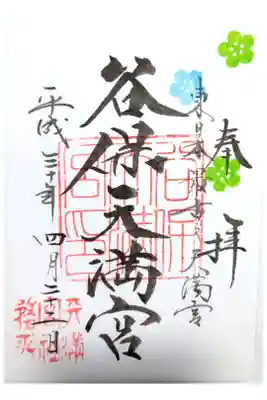 奉拝
東日本最古の天満宮
谷保天満宮
平成三十年四月二十二日